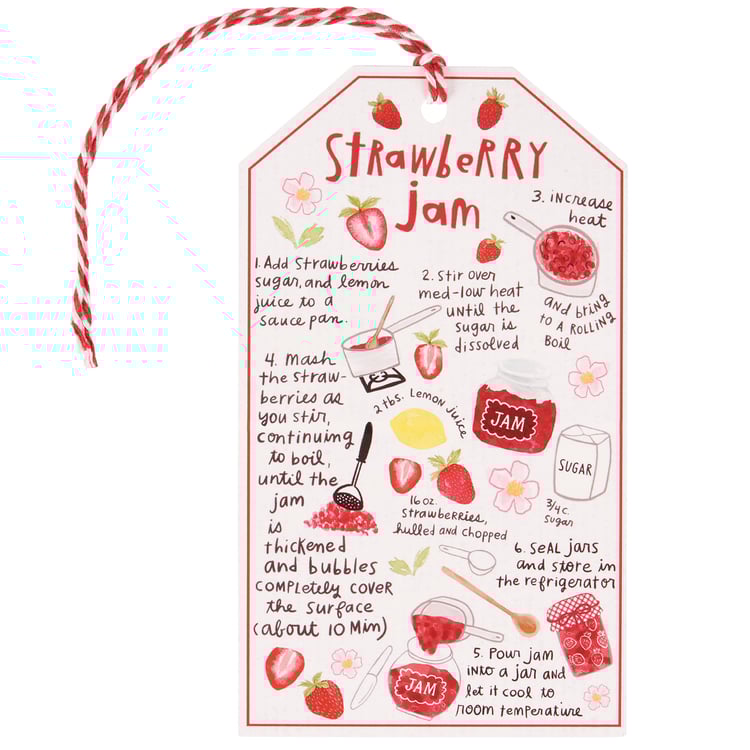 StRawbeRRY
jam
1. Add Strawberries
sugar, and lemon
juice to a
sauce pan.
2. Stir over
med-low heat
until the
sugar is
dissolved
3. increase
heat
and bring
to a Rolling
Boil
4. Mash
the straw-
berries as
you stir,
continuing
to boil,
until the
jam
is
thickened
and bubbles
completely cover
the surface
(about 10 Min)
2 tbs. Lemon juice
JAM
SUGAR
3/4 c.
sugar
16 oz.
strawberries,
hulled and chopped
6. Seal jars
and store in
the refrigerator
5. Pour jam
into a jar and
let it cool to
room temperature
JAM